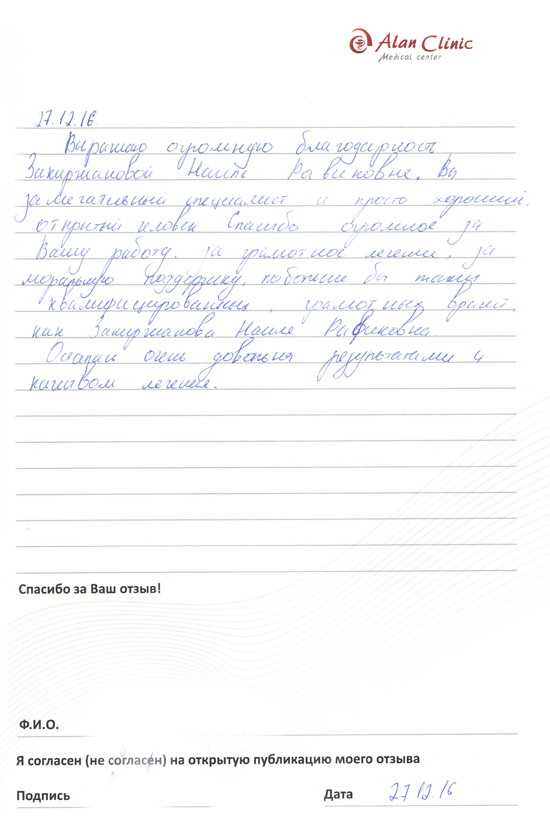 Alan Clinic
Medical center
27.12.16
Выражаю огромную благодарность
Закиржановой Наиле Равиковне. Вы
замечательный специалист и просто хороший,
открытый человек Спасибо огромное за
Вашу работу. за грамотное лечение, за
моральную поддержку, побольше бы таких
квалифицированных, грамотных врачей,
как Закиржанова Наиле Рафиковна
Остались очень довольна результатами и
качеством лечения.
Спасибо за Ваш отзыв!
Ф.И.О.
Я согласен (не согласен) на открытую публикацию моего отзыва
Подпись Дата 27 12 16